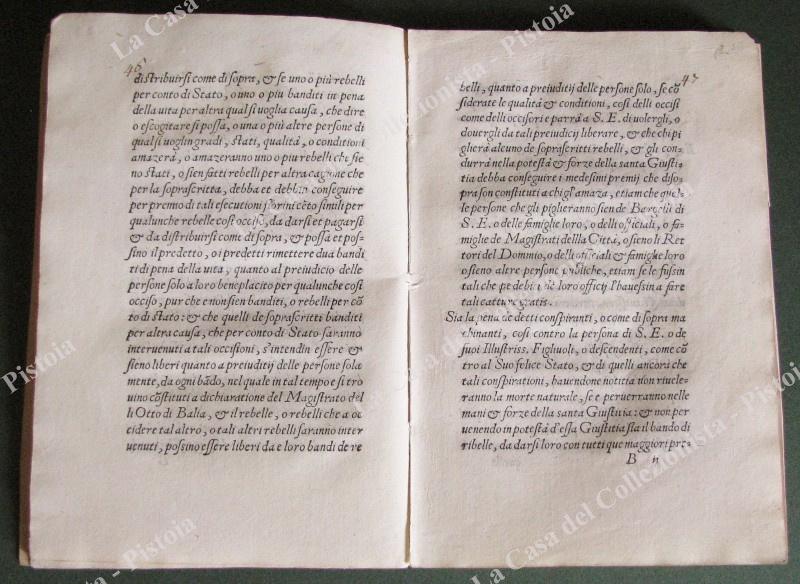 46
distribuirsi come di sopra, & se uno o più rebelli
per conto di Stato, o uno o piu banditi in pena
della vita per altra qual si uoglia causa, che dire
o escogitare si possa, o una o più altre persone di
qual si uoglin gradi, stati, qualità, o conditioni
amazerà, o amazeranno uno o piu rebelli che sie
no stati, o sien fatti rebelli per altra cagione che
per la soprascritta, debba et debbin conseguire
per premio di tali esecutioni fiorini cẽto simili per
qualunche rebelle cosi occiso, da darsi et pagarsi
& da distribuirsi come di sopra, & possa et pos-
sino il predetto, o i predetti rimettere dua bandi
ti di pena della vita, quanto al preiudicio delle
persone solo a loro beneplacito per qualunche cosi
occiso, pur che e non sien banditi, o rebelli per cõ
to di stato: & che quelli de soprascritti banditi
per altra causa, che per conto di Stato saranno
interuenuti a tali occisioni, s'intendin essere &
sieno liberi quanto a preiuditij delle persone sola
mente, da ogni bãdo, nel quale in tal tempo e si tro
uino cõstituti a dichiaratione del Magistrato del
li Otto di Balia, & il rebelle, o rebelli che a oc
cidere tal altro, o tali altri rebelli saranno inter
uenuti, possino essere liberi da e loro bandi de re
47
belli, quanto a preiuditij delle persone solo, se cõ
siderate le qualità & conditioni, cosi delli occisi
come delli occisori e parrà a S. E. di uolergli, o
douergli da tali preiudicij liberare, & che chi pi
glierà alcuno de soprascritti rebelli, & gli con
durrà nella potestà & forze della santa Giusti
tia debba conseguire i medesimi premij che di so
pra son constituti a chi gl'amaza, etiam che quel
le persone che gli piglieranno sien de Bargelli di
S. E. o delle famiglie loro, o delli officiali, o fa
miglie de Magistrati dellla Città, o sieno li Ret
tori del Dominio, o delli officiali & famiglie loro
o sieno altre persone publiche, etiam se le fussin
tali che pe debiti de loro officij l'hauessin a fare
tali catture gratis.
Sia la pena de detti conspiranti, o come di sopra ma
chinanti, cosi contro la persona di S. E. o de
suoi Illustriss. Figliuoli, o descendenti, come cõ
tro al Suo felice Stato, & di quelli ancori che
tali conspirationi, hauendone notitia non riuele-
ranno la morte naturale, se e peruerranno nelle
mani & forze della santa Giustitia: & non per
uenendo in potestà d'essa Giustitia sia il bando di
ribelle, da darsi loro con tutti que maggiori pre-
B ij
La Casa del Collezionista - Pistoia